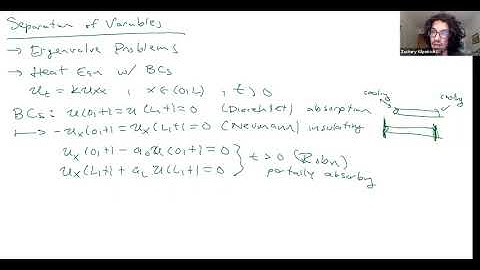 Separation of Variables
→ Eigenvalue Problems
→ Heat Eqn w/ BCs
u_t = k u_xx , x ∈ (0,L) , t > 0
BCs: u(0,t) = u(L,t) = 0 (Dirichlet) absorption
↦ -u_x(0,t) = u_x(L,t) = 0 (Neumann) insulating
u_x(0,t) - a_0 u(0,t) = 0
u_x(L,t) + a_L u(L,t) = 0 } t > 0 (Robin)
partially absorbing
cooling cooling